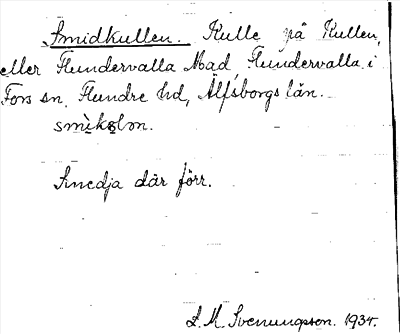 Smidkullen. Kulle på Kullen,
eller Flundervalla Mad Flundervalla i
Fors sn, Flundre hd, Älfsborgs län.
smìkọlọn.
Smedja där förr.
L. M. Svenungsson. 1934.